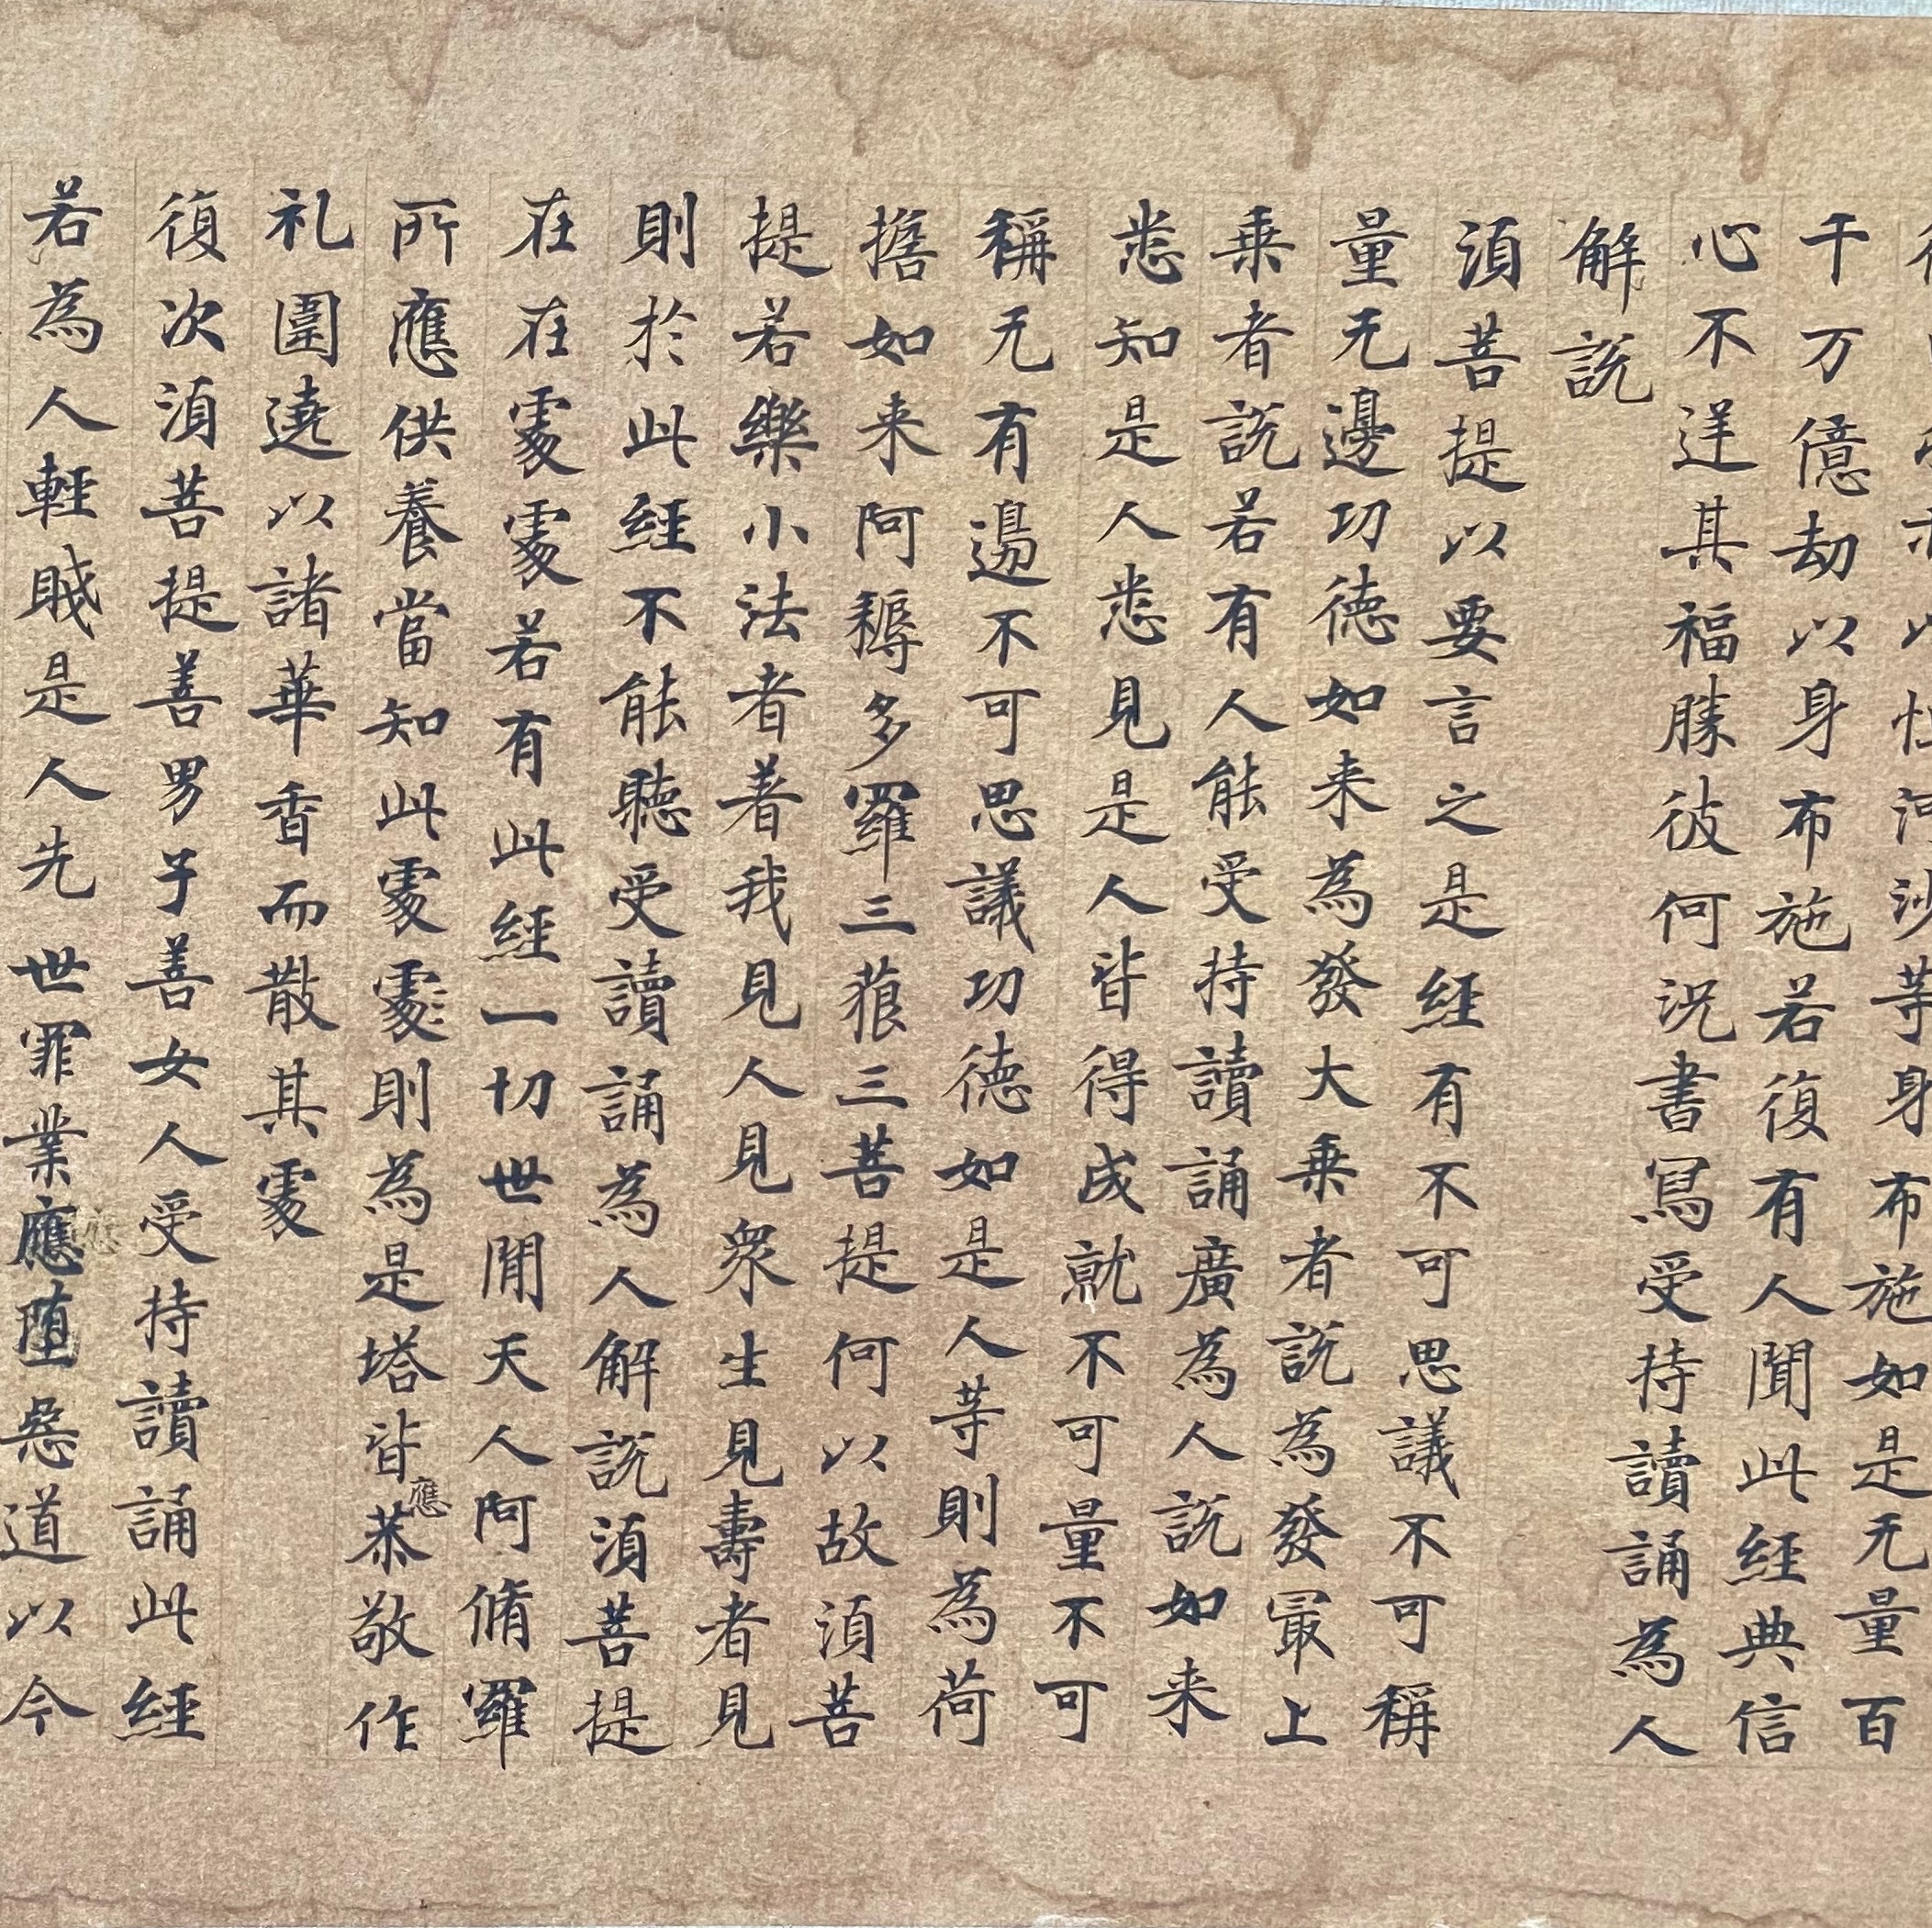 河沙等身布施如是无量百
千万億劫以身布施若復有人聞此経典信
心不逆其福勝彼何況書寫受持讀誦為人
解説
湏菩提以要言之是経有不可思議不可稱
量无邊功德如来為發大乗者説為發冣上
乗者説若有人能受持讀誦廣為人説如来
悉知是人悉見是人皆得成就不可量不可
稱无有邊不可思議功德如是人等則為荷
擔如来阿耨多羅三藐三菩提何以故湏菩
提若樂小法者著我見人見衆生見壽者見
則於此経不能聽受讀誦為人解説湏菩提
在在䖏䖏若有此経一切世間天人阿脩羅
所應供養當知此䖏䖏則為是塔皆應恭敬作
礼圍遶以諸華香而散其䖏
復次湏菩提善男子善女人受持讀誦此経
若為人輕賤是人先世罪業應堕惡道以今